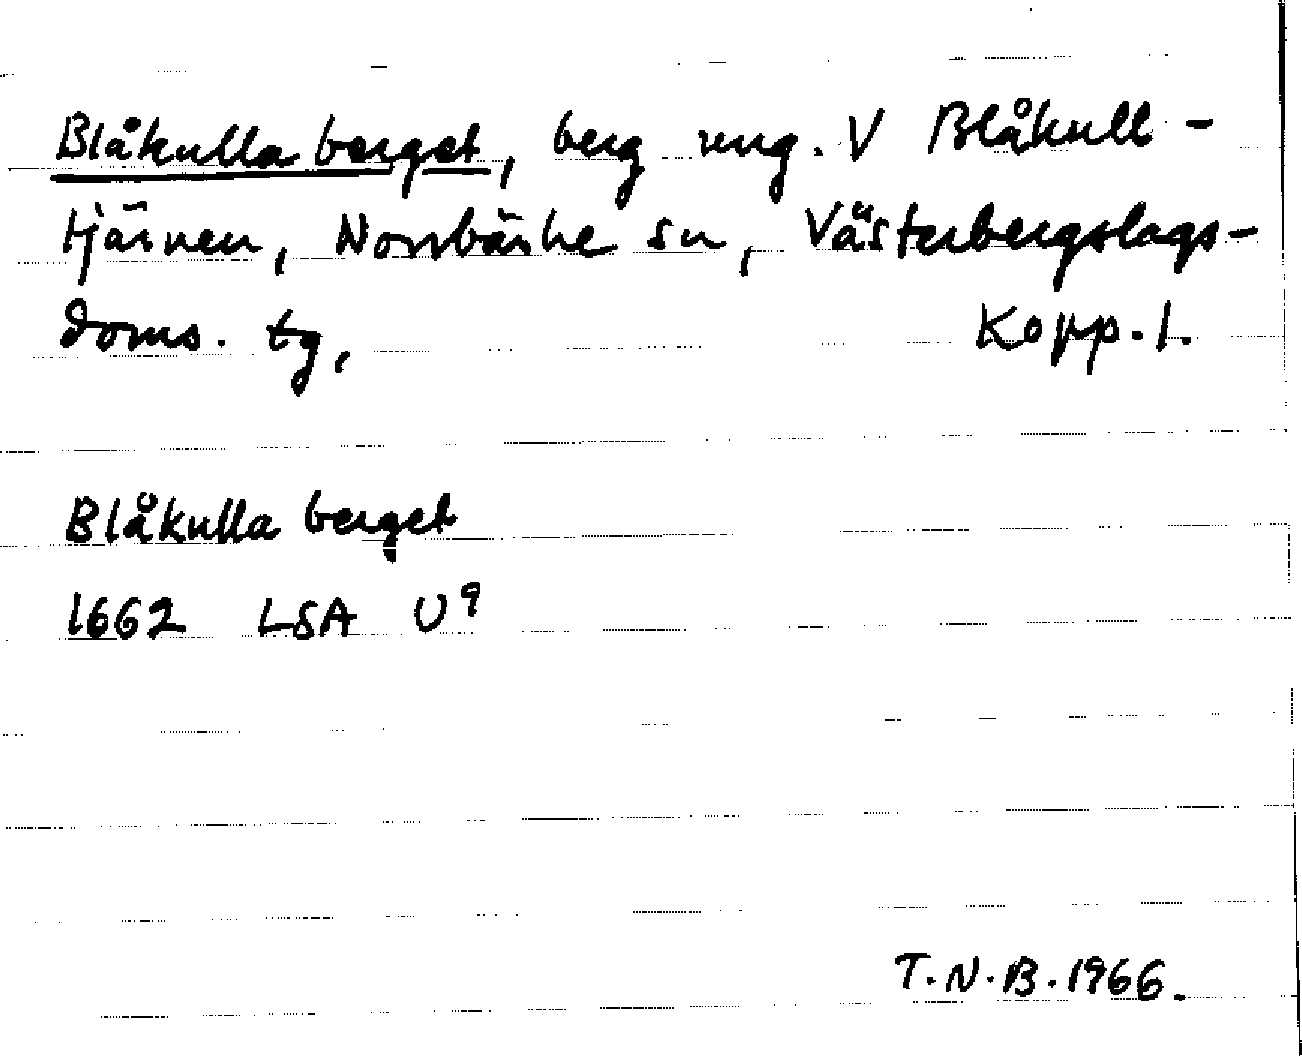 Blåkulla berget, berg ung. V Blåkull-
tjärnen, Norrbärke sn, Västerbergslags-
doms. tg, Kopp. l.
Blåkulla berget
1662 LSA U9
T.N.B. 1966.